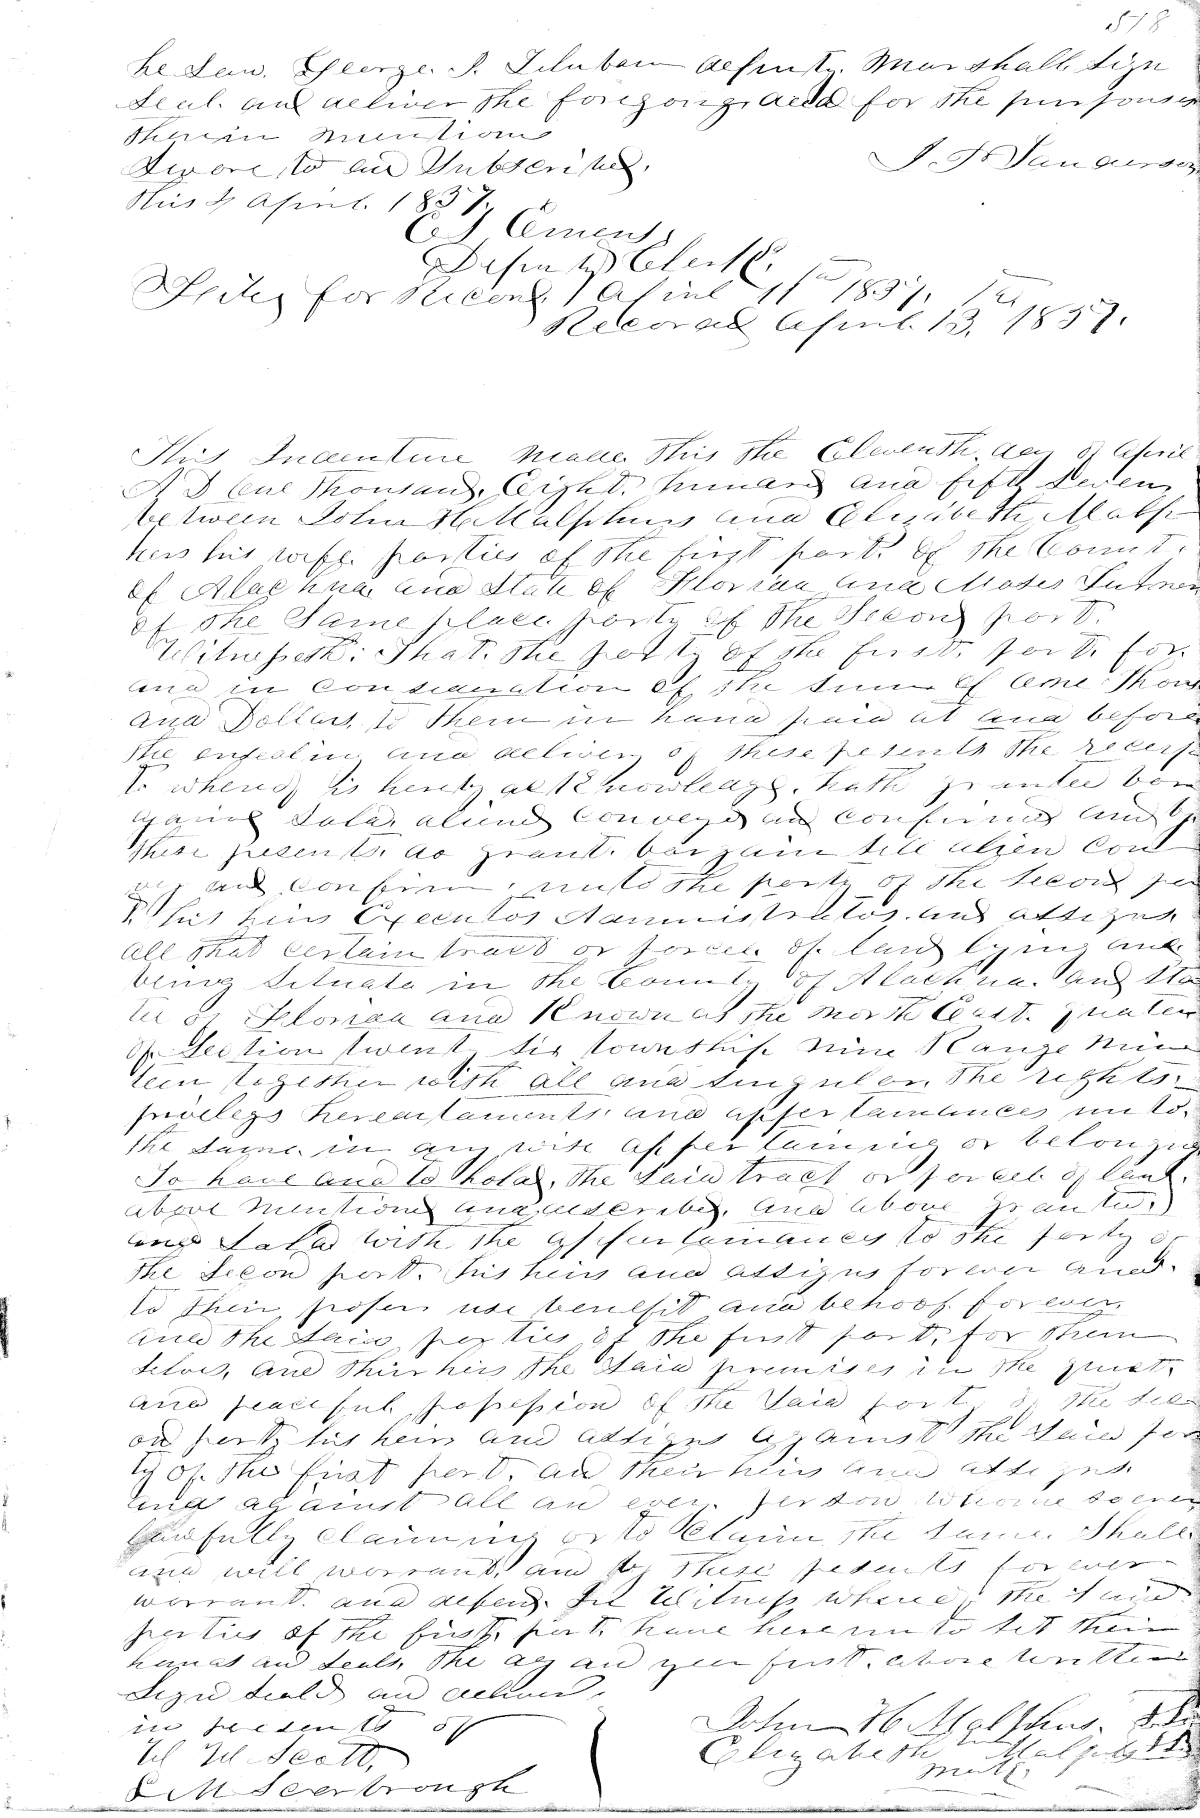 518
he saw. George. S. deputy. Marshall. Sign
Seal. and deliver the foregoing deed for the purposes
therein mentiond
Swore to and Subscribed.
this 4 April. 1857.
Deputy Clerk.
for Record. April 11th 1857.
Recorded April. 13th 1857.
This Indenture made this the Eleventh. day of April
A D one thousand. Eight. hundred and fifty Seven,
between John H. Malphurs and Elizabeth Malp
hurs his wife. parties of the first part. of the County.
of Alachua. and State of Florida and Moses
of the Same place. party of the Second part.
Witnesseth: That. the party of the first. part. for.
and in consideration of the sum of one thous
and Dollars. to them in hand paid at and before
the ensealing and delivery of these presents the receip
t. whereof is hereby acknowledge. hath granted bar
gained Sold. aliened conveyed and confirmed and by
these presents. do grant. bargain sell alien con
vey and confirm. unto the party of the Second par
t. his heirs Executos Administratos. and assigns.
all that certain tract or parcel. of. land lying and
being Situate in the County of Alachua. and Sta
te of Florida and Known as the North East. quater
of. Section twenty six township nine Range Nine
teen together with all and singular. the rights.
privelegs hereditaments. and appertainances unto.
the same. in any wise appertaining or belonging
To have and to hold. the said tract or parcel. of land.
above mentioned and described. and above granted.
and Sold with the appurtainances to the party of
the Second part. his heirs and assigns forever and.
to their proper use benefit and behoof. forever.
and the said parties of the first part. for them
selves, and their heirs the said premises in the quiet.
and peaceful. possession of the Said party of the sec
ond party his heirs and assigns against the Said par
ty of. the first part. and their heirs and assigns.
and against all and every. person whome soever
lawfully claiming or to claim the same. Shall.
and will warrant. and by these presents forever
warrant. and defend. In Witness whereof the Said
parties of the first. part. have hereunto set their
hands and seals. the day and year first. above written
Signd Seald and deliverd.
in presents of
W W Scott,
M Scarbrough
John H Malphurs. L.S.
Elizabeth Malphurs L.S.
mark.